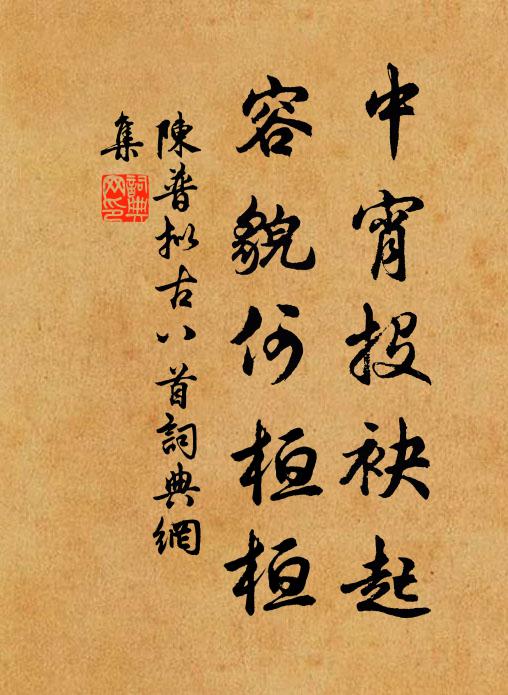 中宵投袂起
容貌何桓桓
陳普拟古八首詞典網
集
詞典網印